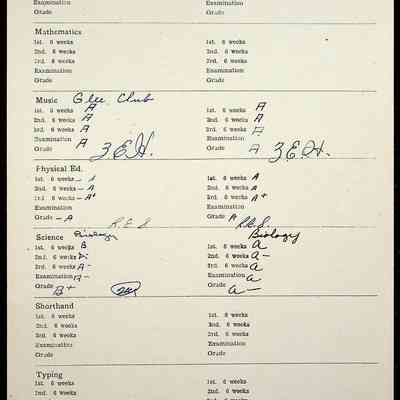 Examination Examination
Grade Grade
Mathematics
1st. 6 weeks 1st. 6 weeks
2nd. 6 weeks 2nd. 6 weeks
3rd. 6 weeks 3rd. 6 weeks
Examination Examination
Grade Grade
Music Glee Club
1st. 6 weeks A 1st. 6 weeks A
2nd. 6 weeks A 2nd. 6 weeks A
3rd. 6 weeks A 3rd. 6 weeks A
Examination Examination
Grade A Z.E.H. Grade A Z.E.H.
Physical Ed.
1st. 6 weeks - A 1st. 6 weeks A
2nd. 6 weeks - A 2nd. 6 weeks A
3rd. 6 weeks - A+ 3rd. 6 weeks A+
Examination Examination
Grade - A R.E.S Grade A R.E.S.
Science Biology Biology
1st. 6 weeks B 1st. 6 weeks A
2nd. 6 weeks 2nd. 6 weeks A-
3rd. 6 weeks A- 3rd. 6 weeks A
Examination A- Examination A
Grade B+ Grade A-
Shorthand
1st. 6 weeks 1st. 6 weeks
2nd. 6 weeks 2nd. 6 weeks
3rd. 6 weeks 3rd. 6 weeks
Examination Examination
Grade Grade
Typing
1st. 6 weeks 1st. 6 weeks
2nd. 6 weeks 2nd. 6 weeks